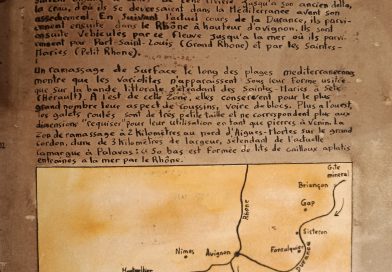 l'eau, d'où ils se déversaient dans la Méditerranée avant son
assèchement. En suivant l'actuel cours de la Durance, ils parvi-
ennent ensuite dans le Rhône à hauteur d'avignon. Ils sont
ensuite véhiculés par ce fleuve jusqu'à la mer où ils parvi-
ennent par Port-Saint-Louis (Grand Rhône) et par les Saintes-
Maries (Petit Rhône).
Un ramassage de surface le long des plages méditerranéennes
montre que les variolites n'apparaissent sous leur forme usitée
que sur la bande littorale s'étendant des Saintes-Maries à Sète
(Hérault). A l'est de cette zone, elles conservent pour le plus
grand nombre leur aspect de coussins, voire de blocs. Plus à l'ouest,
les galets roulés sont de très petite taille et ne correspondent plus aux
dimensions "requises" pour leur utilisation en tant que pierres à venin. La
zone de ramassage à 2 kilomètres au nord d'Aigues-Mortes sur le grand
cordon, dune de 3 kilomètres de largeur, s'étendant de l'actuelle
camargue à Palavas: sa bas est formée de lits de cailloux aplatis
entraînés à la mer par le Rhône.
Gîte
minéral
Briançon
Gap
Rhône
Sisteron
Forcalquier
Nîmes
Avignon
Durance
Montpellier